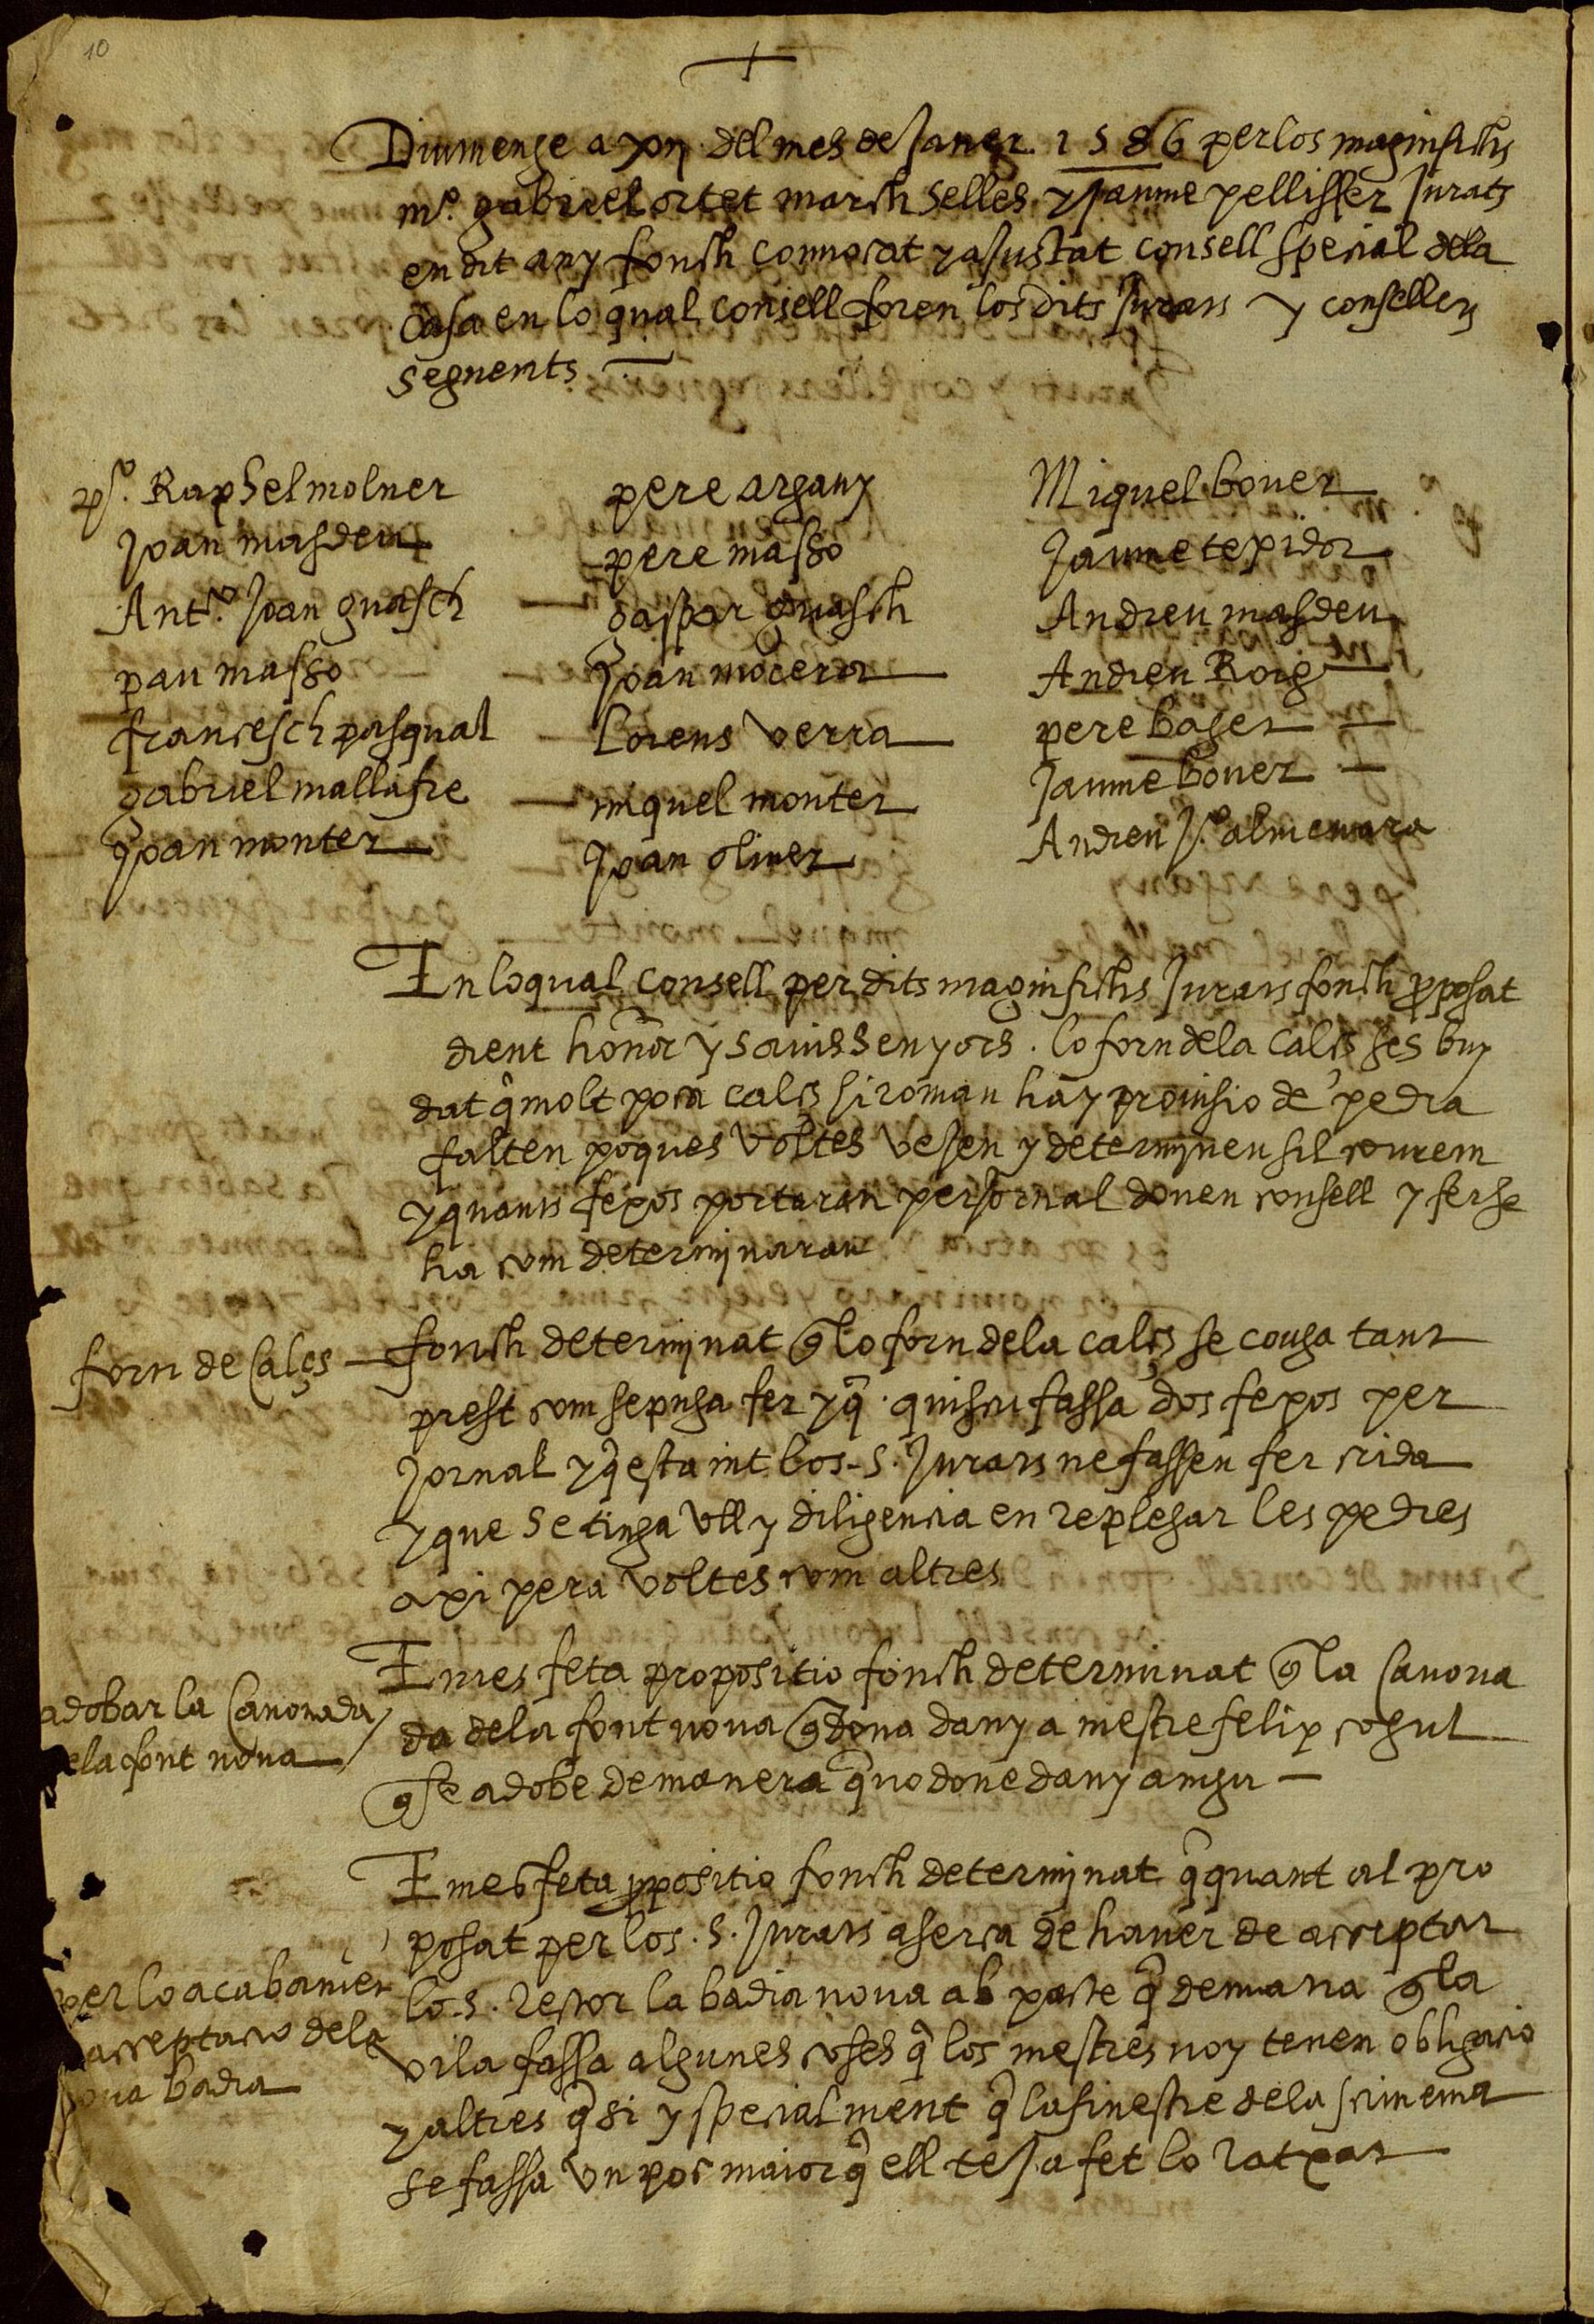 10
Diumenge a xii del mes de Janer 1586 per los maginfichs
mº. gabriel ortet march selles y Jaume pellisser Jurats
en dit any fonch conuocat y aJustat consell special dela
casa en lo qual consell foren los dits Jurats y consellers
seguents
Raphel molner
Joan masdeu
Antº. Joan guasch
pau masso
francesch pasqual
gabriel mallafre
Joan monter
pere argany
pere masso
gaspar guasch
Joan moceror
Lorens verra
miquel monter
Joan oliuer
Miquel bouer
Jaume tepidor
Andreu masdeu
Andreu Roig
pere bages
Jaume bouer
Andreu Jº. almenara
En lo qual consell per dits maginfichs Jurats fonch pposat
dient honor y sauis senyors . lo forn dela calls ses buy
dat q̃ molt poca cals si roman hay prouisio de pedra
falten poques voltes veJen y determjnen sil courem
y quants fexos portaran per Jornal donen consell y ferse
ha com determjnaran
forn de Calçs
fonch determjnat q̃ lo forn dela calçs se couga tant
prest com se puga fer y q̃ . quiscu fassa dos fexos per
Jornal y q̃ esta nit los . s . Jurats ne fassen fer crida
y que se tinga vll y diligencia en replegar les pedres
axi pera voltes com altres
adobar la Canonada
ela font noua
E mes feta propositio fonch determinat q̃ la Canona
da dela font noua q̃ dona dany a mestre felip cogul
q̃ se adobe de manera q̃ no done dany a ningu
per lo acabamen
acceptacio dela
oua badia
E mes feta ppositio fonch determjnat q̃ quant al pro
posat per los . s . Jurats aserca de hauer de acceptar
lo . s . rector la badia noua ab pacte q̃ demana q̃ la
vila fassa algunes coses q̃ los mestres noy tenen obligacio
y altres q̃ si y specialment q̃ la finestre dela
se fassa vn poc maior q̃ ell te Ja fet lo